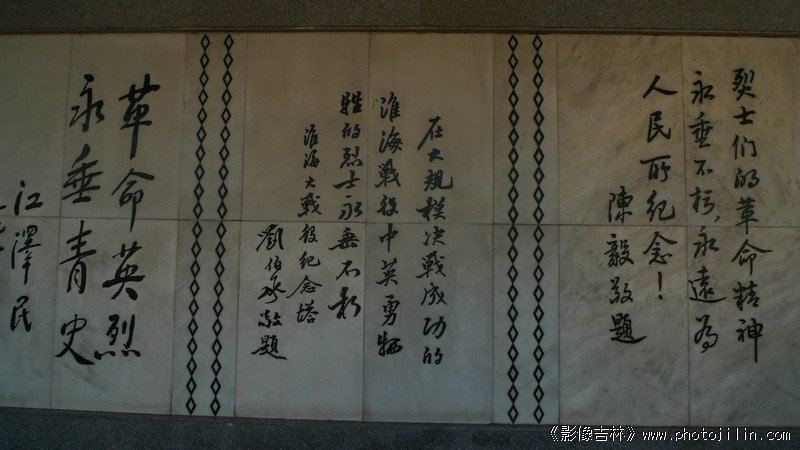 烈士们的革命精神
永垂不朽，永遠为
人民所纪念！
陳毅敬題
在大規模决戰成功的
淮海戰役中英勇牺
牲的烈士永垂不朽
淮海大戰役纪念塔
劉伯承敬題
革命英烈
永垂青史
江澤民
《影像吉林》www.photojilin.com